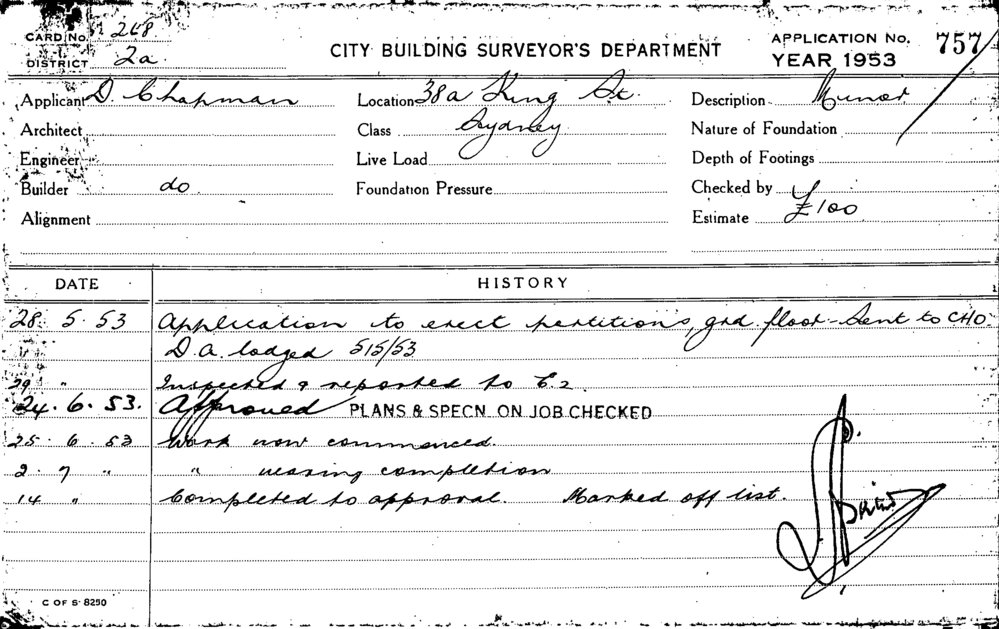 CARD No. 268
DISTRICT 2a.
CITY BUILDING SURVEYOR'S DEPARTMENT
APPLICATION No. 757/
YEAR 1953
Applicant D. Chapman Location 38a King St. Description Minor
Architect Class Sydney Nature of Foundation
Engineer Live Load Depth of Footings
Builder do Foundation Pressure Checked by
Alignment Estimate £100
DATE HISTORY
28. 5. 53 Application to erect partitions, grd. floor - Sent to CHO
" D.A. lodged 515/53
29 " Inspected & reported to E.2.
24. 6. 53. Approved PLANS & SPECN. ON JOB CHECKED
25. 6. 53 Work now commenced.
2. 7 " " nearing completion
14 " Completed to approval. Marked off list.
C OF S. 8250